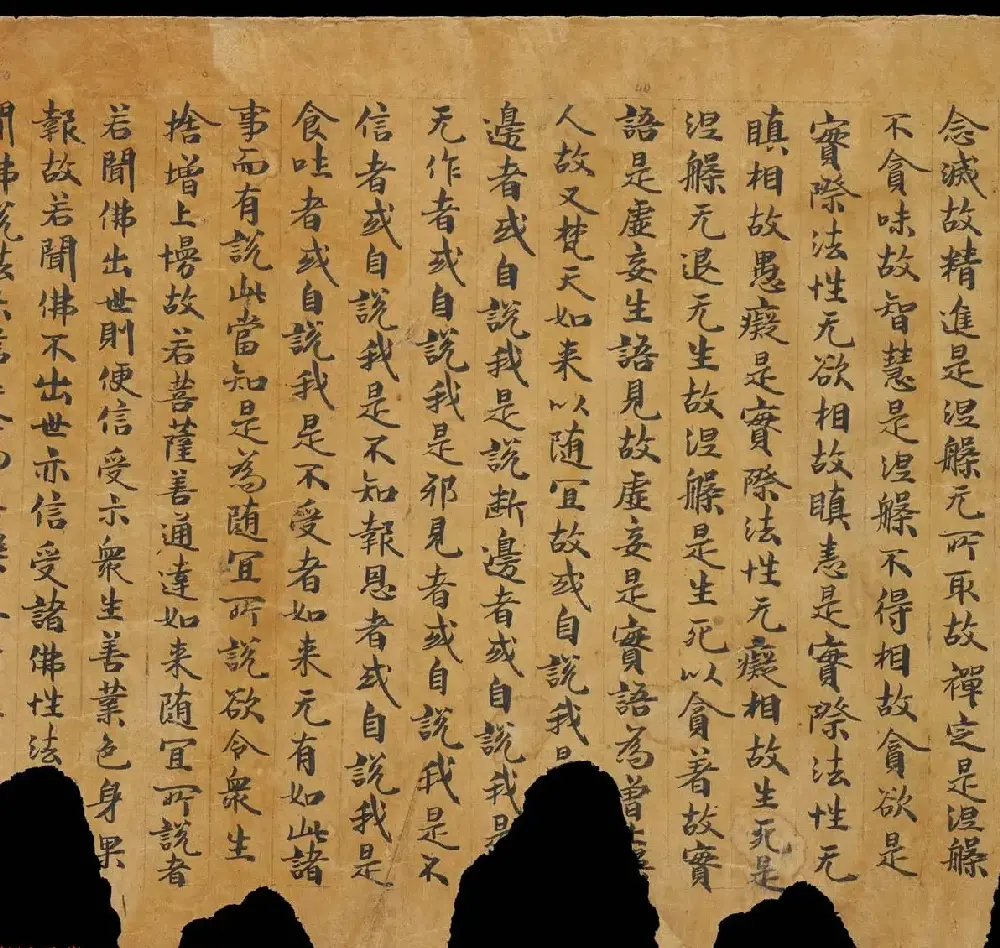 念滅故精進是涅槃无所取故禪定是涅槃
不貪味故智慧是涅槃不得相故貪欲是
實際法性无欲相故瞋恚是實際法性无
瞋相故愚癡是實際法性无癡相故生死是
涅槃无退无生故涅槃是生死以貪著故實
語是虛妄生語見故虛妄是實語為增上
人故又梵天如来以随宜故或自說我是
邊者或自說我是說断邊者或自說我是
无作者或自說我是邪見者或自說我是不
信者或自說我是不知報恩者或自說我是
食吐者或自說我是不受者如来无有如此諸
事而有說此當知是為随宜所說欲令衆生
捨增上慢故若菩薩善通達如来随宜所說者
若聞佛出世則便信受示衆生善業色身果
報故若聞佛不出世亦信受諸佛性法
聞佛說法